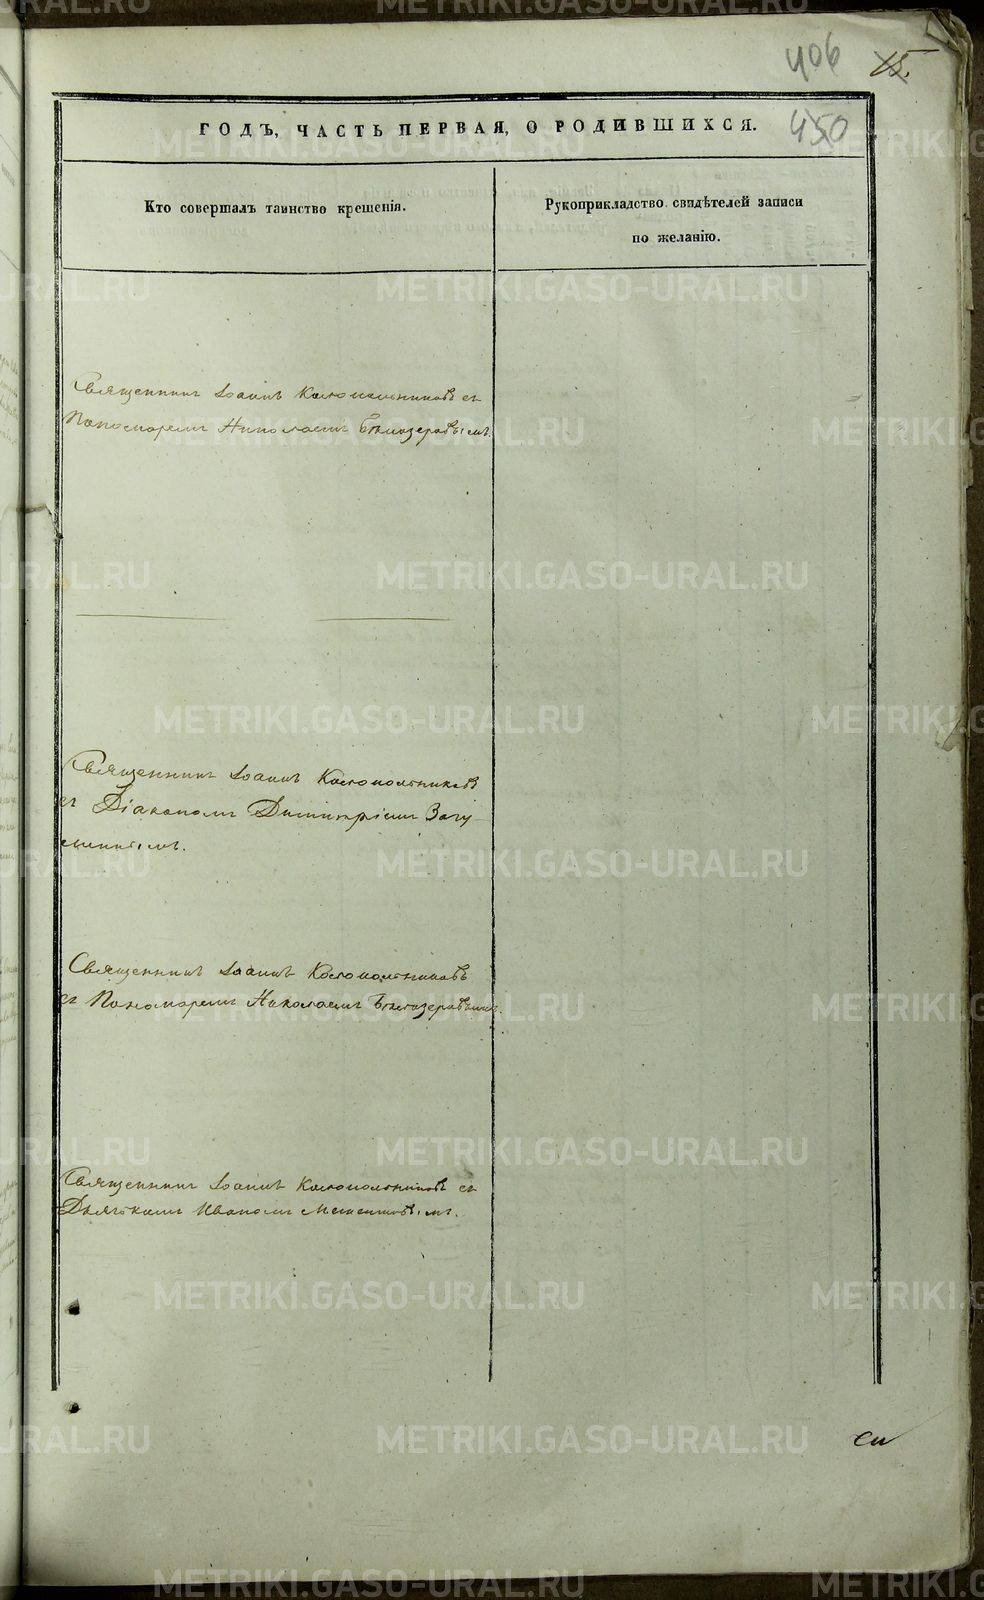 406 15.
ГОДЪ, ЧАСТЬ ПЕРВАЯ, О РОДИВШИХСЯ. 450
Кто совершалъ таинство крещенія.
Рукоприкладство свидѣтелей записи
по желанію.
Священникъ Іоаннъ съ
Пономаремъ Николаемъ Бѣлозеровымъ.
Священникъ Іоаннъ
съ Діакономъ Димитріемъ
Священникъ Іоаннъ
съ Пономаремъ Николаемъ Бѣлозеровымъ.
Священникъ Іоаннъ съ
Дьячкомъ Иваномъ
METRIKI.GASO-URAL.RU